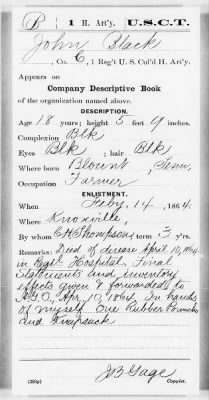 B | 1 H. Art'y. | U.S.C.T.
John Black
, Co. C, 1 Reg't U. S. Col'd H. Art'y.
Appears on
Company Descriptive Book
of the organization named above.
DESCRIPTION.
Age 18 years; height 5 feet 9 inches.
Complexion Blk
Eyes Blk ; hair Blk
Where born Blount, Tenn
Occupation Farmer
ENLISTMENT.
When Feby. 14, 1864.
Where Knoxville
By whom Thompson, term 3 y'rs.
Remarks: Died of disease April 10, 1864
in Regtl Hospital. Final
Statements and inventory
effects given & forwarded to
A.G.O., Apr. 10, 1864. In hands
of myself One Rubber
and Knapsack
J B Gage
(383g) Copyist.